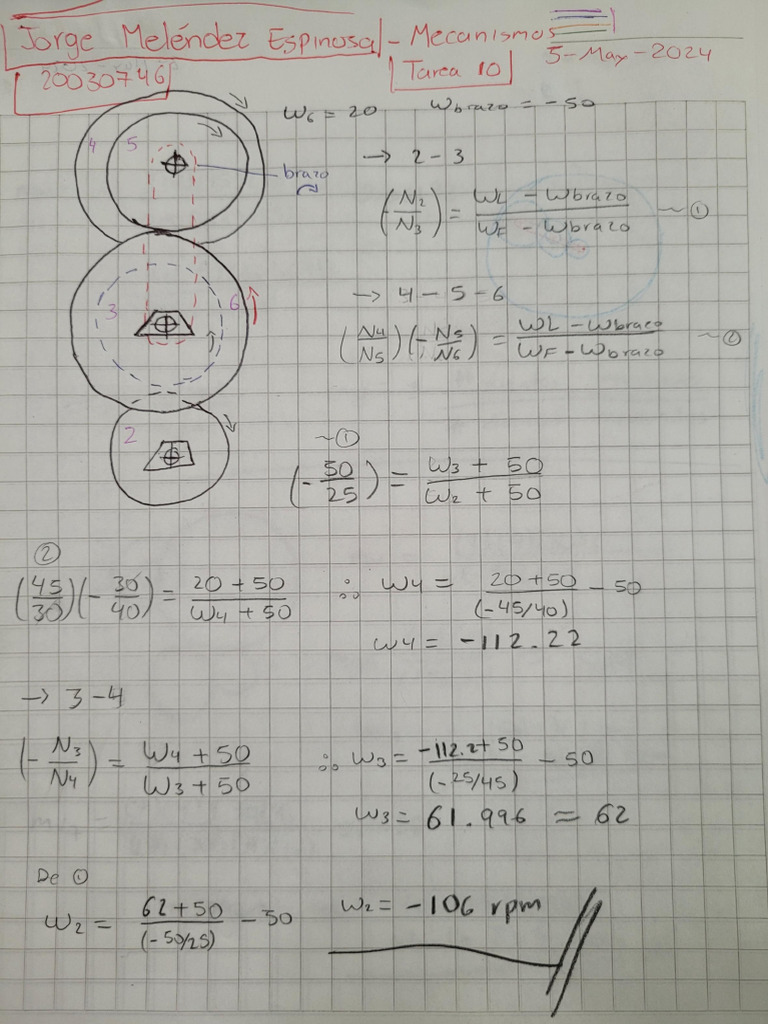 Jorge Meléndez Espinosa - Mecanismos
5-May-2024
20030746
Tarea 10
ω6 = 20 ωbrazo = -50
4 5
brazo
→ 2 - 3
(-N2/N3) = (ωL - ωbrazo)/(ωF - ωbrazo) ~①
3 6
→ 4 - 5 - 6
(N4/N5)(-N5/N6) = (ωL - ωbrazo)/(ωF - ωbrazo) ~②
2
~①
(-50/25) = (ω3 + 50)/(ω2 + 50)
②
(45/30)(-30/40) = (20 + 50)/(ω4 + 50) ∴ ω4 = (20+50)/(-45/40) - 50
ω4 = -112.22
→ 3 - 4
(-N3/N4) = (ω4 + 50)/(ω3 + 50) ∴ ω3 = (-112.2+50)/(-25/45) - 50
ω3 = 61.996 ≈ 62
De ①
ω2 = (62+50)/(-50/25) - 50 ω2 = -106 rpm